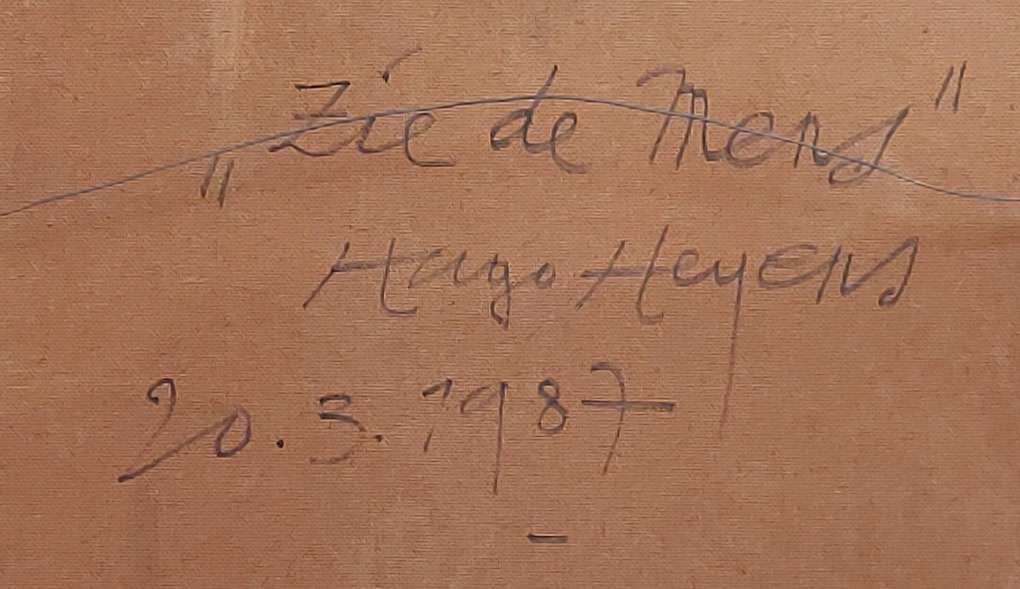 „Zie de Mens"
Hugo Heyens
20.3.1987